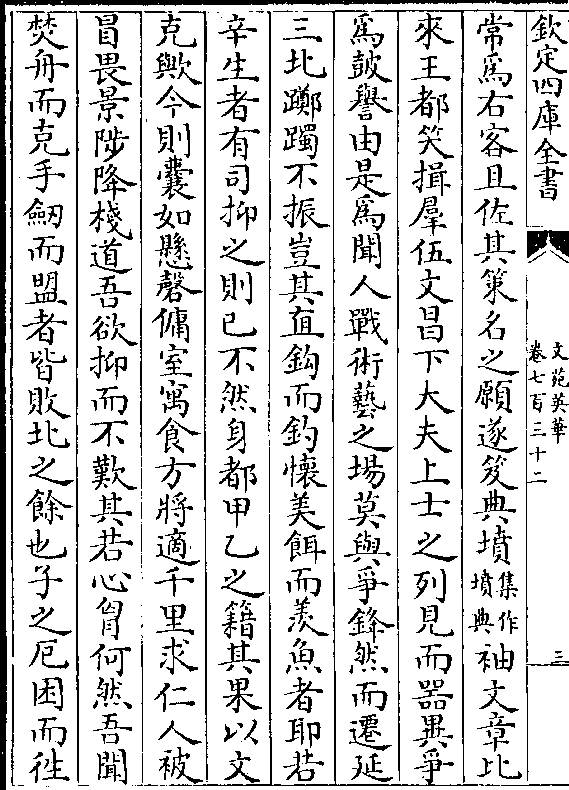 欽定四庫全書
文苑英華
卷七百三十二
三
常爲右客且佐其策名之願遂笈典墳集作墳典袖文章比
來王都笑揖羣伍文昌下大夫上士之列見而器異爭
爲鼓譽由是爲聞人戰術藝之場莫與爭鋒然而遷延
三北躑躅不振豈其直鈎而釣懷美餌而羡魚者耶若
辛生者有司抑之則已不然身都甲乙之籍其果以文
克歟今則囊如懸磬傭室寓食方將適千里求仁人被
冒畏景陟降棧道吾欲抑而不歎其若心胷何然吾聞
焚舟而克手劒而盟者皆敗北之餘也子之厄困而徃